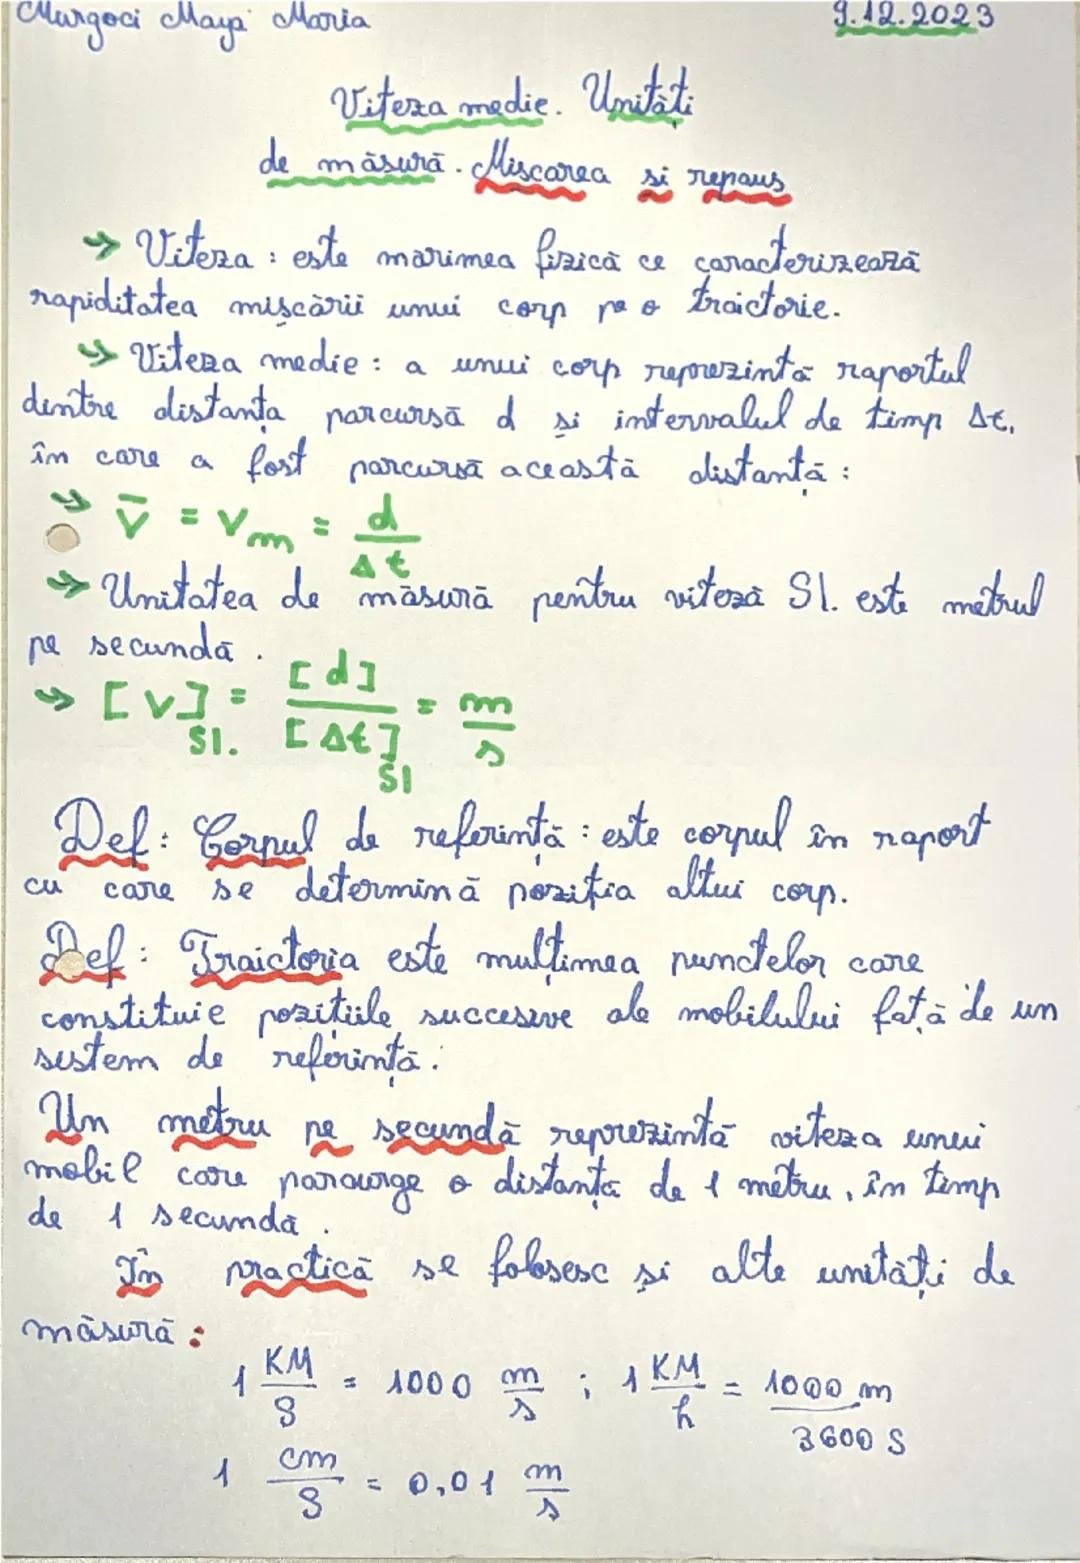 Murgoci Maya Maria 9.12.2023
Viteza medie. Unități
de măsură. Miscarea si repaus
→ Viteza : este marimea fizică ce caracterizează
rapiditatea mișcării unui corp pe o traictorie.
→ Viteza medie : a unui corp reprezintă raportul
dintre distanța parcursă d și intervalul de timp Δt,
în care a fost parcursă această distanță :
→ v̄ = vm = d/Δt
→ Unitatea de măsură pentru viteză SI. este metrul
pe secundă.
→ [v]SI. = [d]/[Δt]SI = m/s
Def: Corpul de referință : este corpul în raport
cu care se determină poziția altui corp.
Def: Traictoria este mulțimea punctelor care
constituie pozițiile succeseve ale mobilului față de un
sistem de referință.
Un metru pe secundă reprezintă viteza unui
mobil care parcurge o distanță de 1 metru, în timp
de 1 secundă.
În practică se folosesc și alte unități de
măsură :
1 KM/s = 1000 m/s ; 1 KM/h = 1000 m/3600 s
1 cm/s = 0,01 m/s